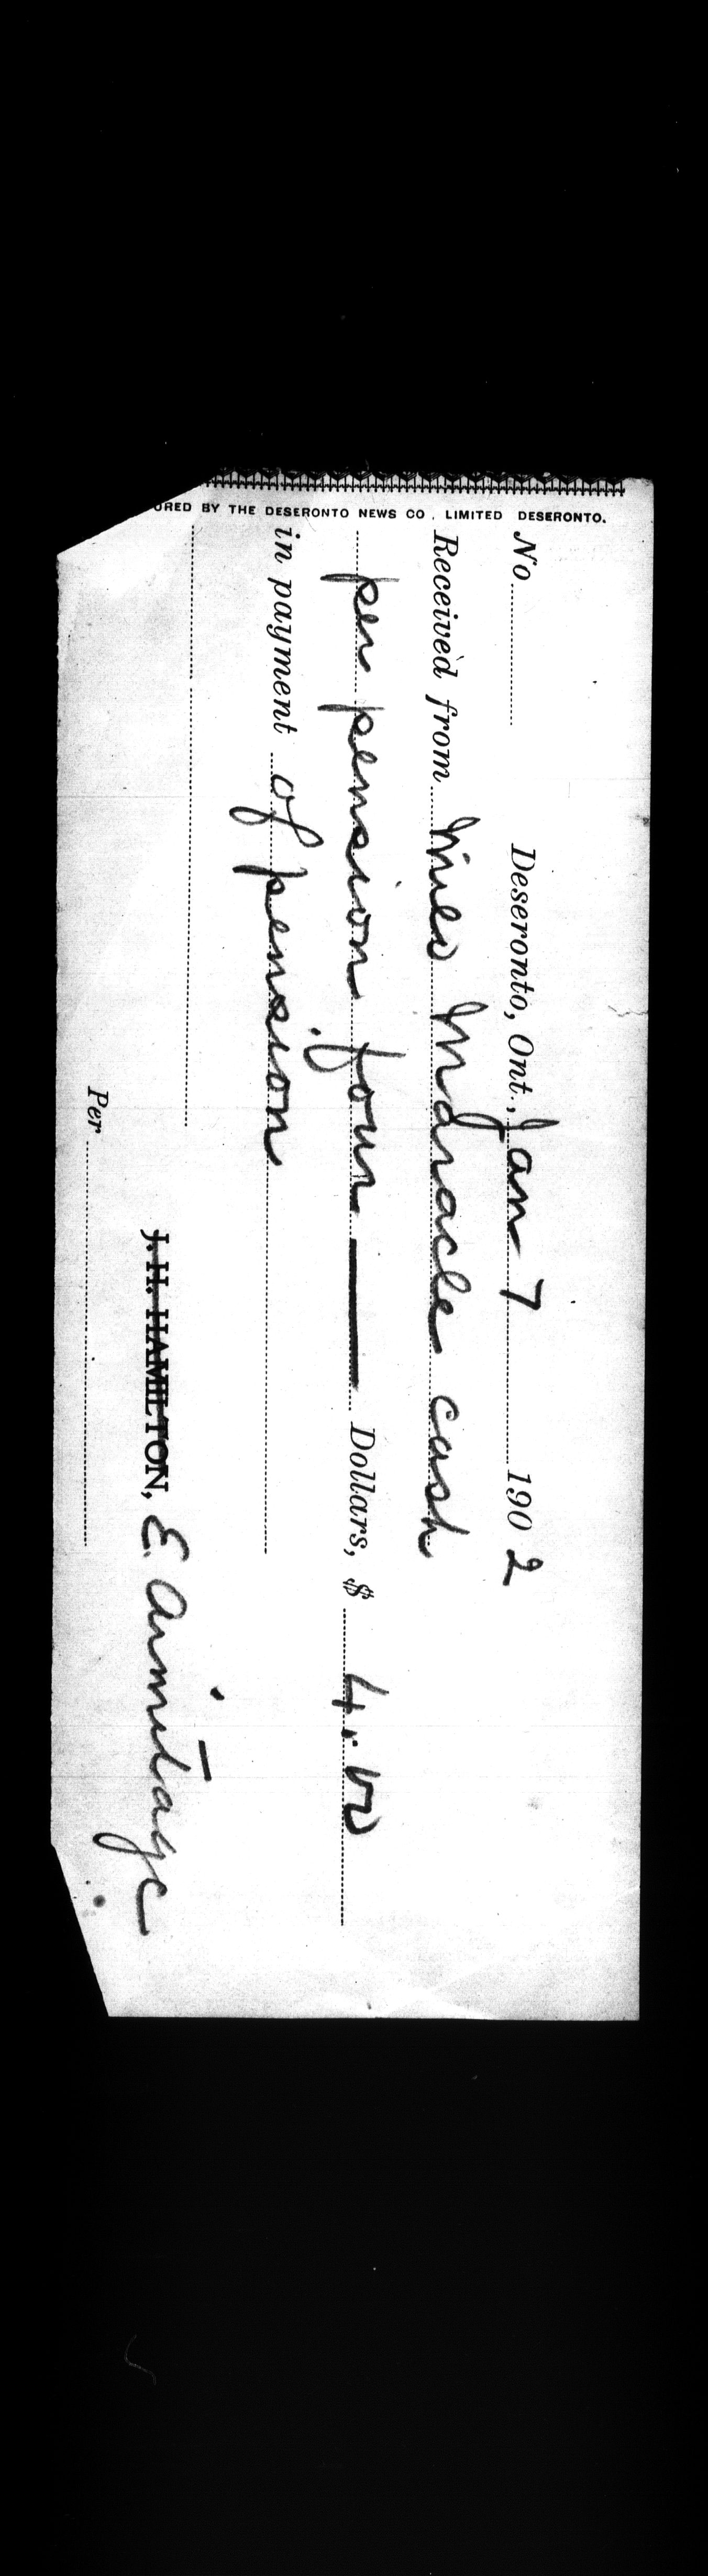 URED BY THE DESERONTO NEWS CO., LIMITED DESERONTO.
No Deseronto, Ont., Jan 7 1902
Received from Miles Maracle cash
per pension four — Dollars, $ 4.00
in payment of pension
J. H. HAMILTON, E. Armitage
Per